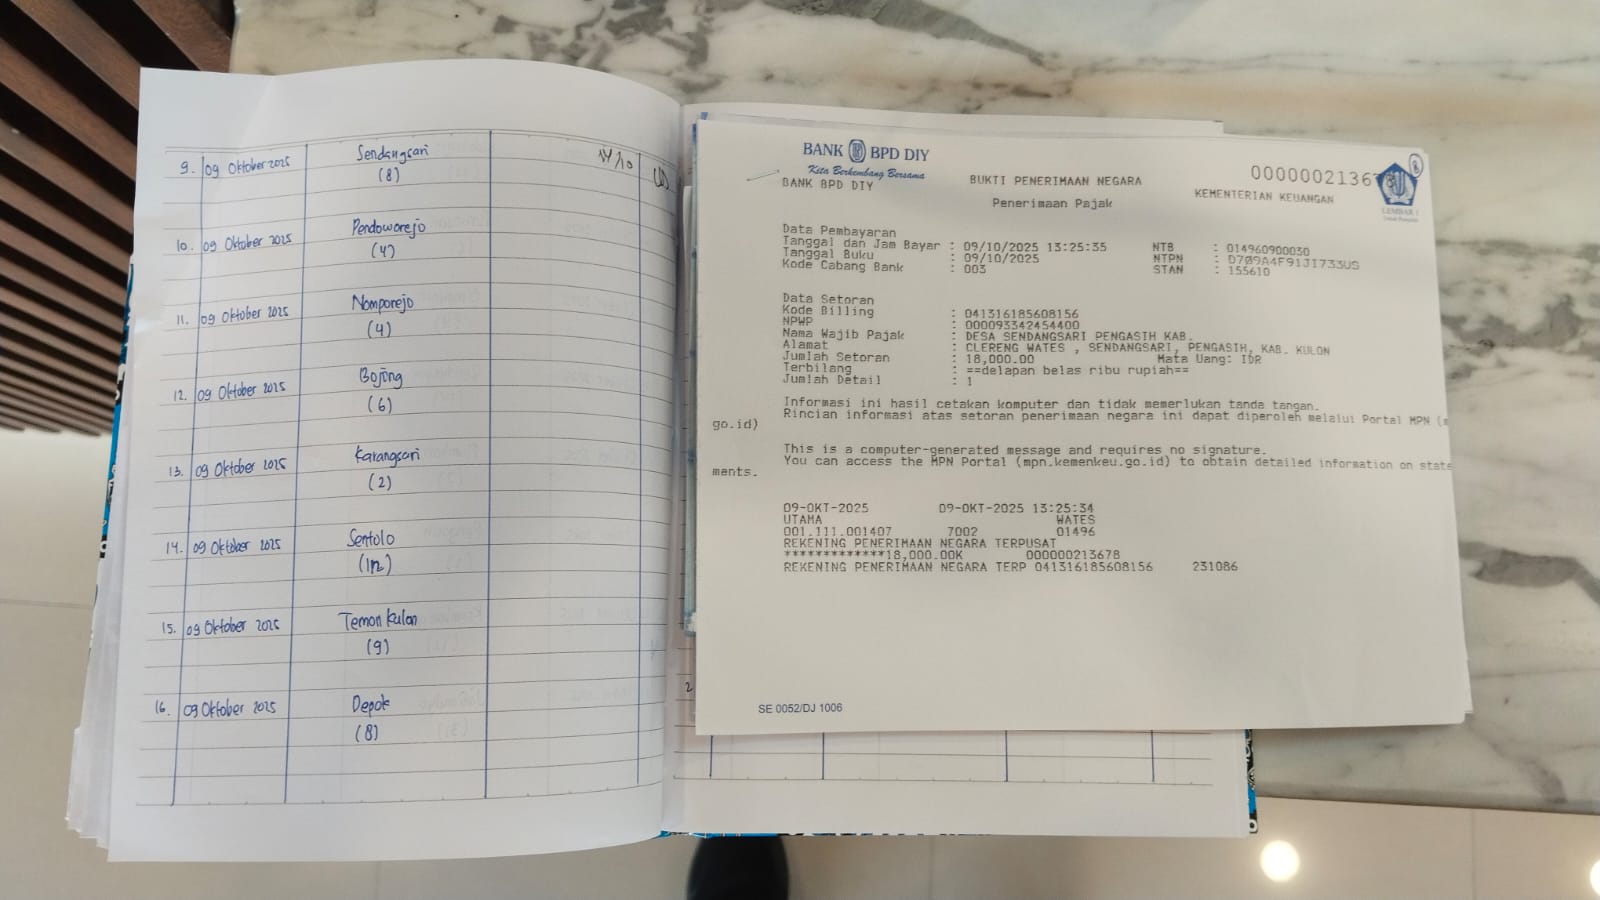 9. 09 Oktober 2025 Sendangsari
(8)
10. 09 Oktober 2025 Pendoworejo
(4)
11. 09 Oktober 2025 Nomporejo
(4)
12. 09 Oktober 2025 Bojong
(6)
13. 09 Oktober 2025 Karangsari
(2)
14. 09 Oktober 2025 Sentolo
15. 09 Oktober 2025 Temon Kulon
(9)
16. 09 Oktober 2025 Depok
(8)
BANK BPD DIY
Kita Berkembang Bersama
BANK BPD DIY
BUKTI PENERIMAAN NEGARA
Penerimaan Pajak
0000002136
KEMENTERIAN KEUANGAN
8
LEMBAR 1
Data Pembayaran
Tanggal dan Jam Bayar : 09/10/2025 13:25:35 NTB : 014960900030
Tanggal Buku : 09/10/2025 NTPN : D709A4F91JI733US
Kode Cabang Bank : 003 STAN : 155610
Data Setoran
Kode Billing : 041316185608156
NPWP : 000093342454400
Nama Wajib Pajak : DESA SENDANGSARI PENGASIH KAB.
Alamat : CLERENG WATES , SENDANGSARI, PENGASIH, KAB. KULON
Jumlah Setoran : 18,000.00 Mata Uang: IDR
Terbilang : ==delapan belas ribu rupiah==
Jumlah Detail : 1
Informasi ini hasil cetakan komputer dan tidak memerlukan tanda tangan.
Rincian informasi atas setoran penerimaan negara ini dapat diperoleh melalui Portal MPN (
go.id)
This is a computer-generated message and requires no signature.
You can access the MPN Portal (mpn.kemenkeu.go.id) to obtain detailed information on state
ments.
09-OKT-2025 09-OKT-2025 13:25:34
UTAMA WATES
001.111.001407 7002 01496
REKENING PENERIMAAN NEGARA TERPUSAT
*************18,000.00K 000000213678
REKENING PENERIMAAN NEGARA TERP 041316185608156 231086
SE 0052/DJ 1006
2